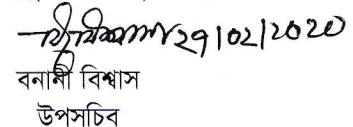 29/02/2020
বনানী বিশ্বাস
উপসচিব